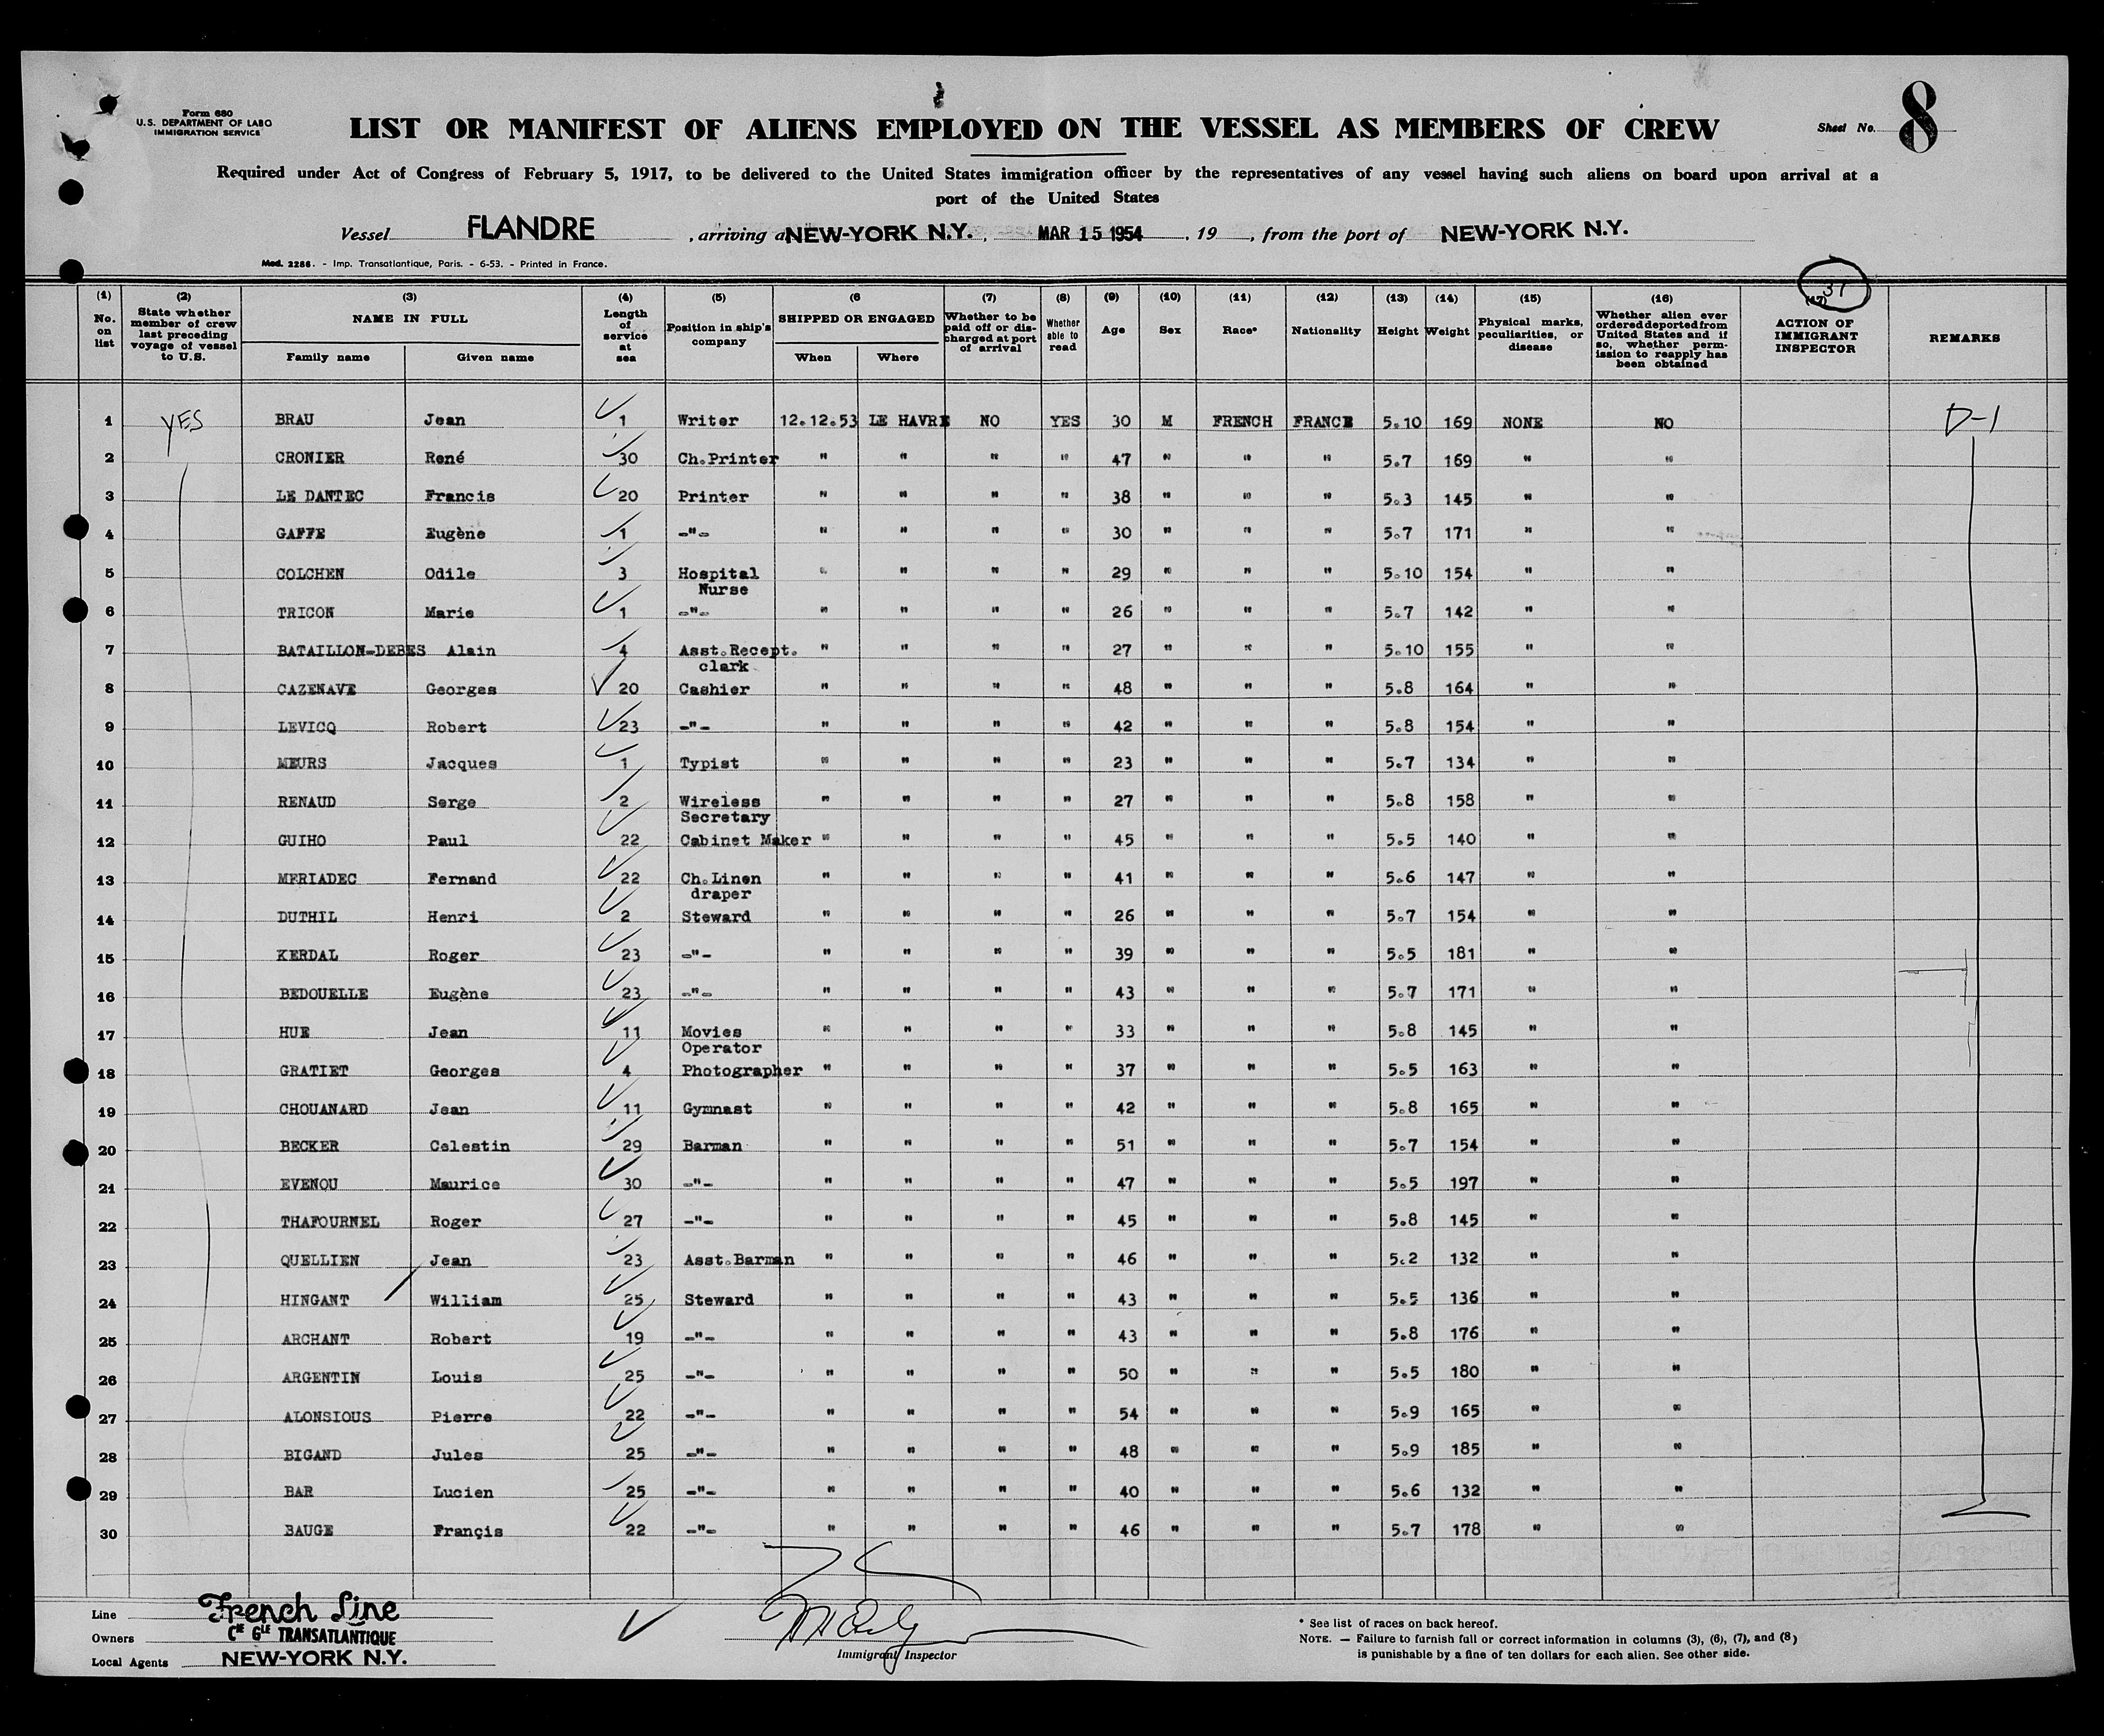 Form 680
U.S. DEPARTMENT OF LABO
IMMIGRATION SERVICE
LIST OR MANIFEST OF ALIENS EMPLOYED ON THE VESSEL AS MEMBERS OF CREW
Sheet No. 8
Required under Act of Congress of February 5, 1917, to be delivered to the United States immigration officer by the representatives of any vessel having such aliens on board upon arrival at a
port of the United States
Vessel FLANDRE , arriving a NEW-YORK N.Y. , MAR 15 1954 , 19 , from the port of NEW-YORK N.Y.
Mod. 2286. - Imp. Transatlantique, Paris. - 6-53. - Printed in France.
31
(1) No. on list
(2) State whether member of crew last preceding voyage of vessel to U.S.
(3) NAME IN FULL Family name Given name
(4) Length of service at sea
(5) Position in ship's company
(6 SHIPPED OR ENGAGED When Where
(7) Whether to be paid off or discharged at port of arrival
(8) Whether able to read
(9) Age
(10) Sex
(11) Race*
(12) Nationality
(13) Height
(14) Weight
(15) Physical marks, peculiarities, or disease
(16) Whether alien ever ordered deported from United States and if so, whether permission to reapply has been obtained
(17) ACTION OF IMMIGRANT INSPECTOR
REMARKS
1 YES BRAU Jean 1 Writer 12.12.53 LE HAVRE NO YES 30 M FRENCH FRANCE 5.10 169 NONE NO D-1
2 CRONIER René 30 Ch.Printer " " " " 47 " " " 5.7 169 " "
3 LE DANTEC Francis 20 Printer " " " " 38 " " " 5.3 145 " "
4 GAFFE Eugène 1 -"- " " " " 30 " " " 5.7 171 " "
5 COLCHEN Odile 3 Hospital Nurse " " " " 29 " " " 5.10 154 " "
6 TRICON Marie 1 -"- " " " " 26 " " " 5.7 142 " "
7 BATAILLON-DEBES Alain 4 Asst.Recept. clark " " " " 27 " " " 5.10 155 " "
8 CAZENAVE Georges 20 Cashier " " " " 48 " " " 5.8 164 " "
9 LEVICQ Robert 23 -"- " " " " 42 " " " 5.8 154 " "
10 MEURS Jacques 1 Typist " " " " 23 " " " 5.7 134 " "
11 RENAUD Serge 2 Wireless Secretary " " " " 27 " " " 5.8 158 " "
12 GUIHO Paul 22 Cabinet Maker " " " " 45 " " " 5.5 140 " "
13 MERIADEC Fernand 22 Ch.Linen draper " " " " 41 " " " 5.6 147 " "
14 DUTHIL Henri 2 Steward " " " " 26 " " " 5.7 154 " "
15 KERDAL Roger 23 -"- " " " " 39 " " " 5.5 181 " "
16 BEDOUELLE Eugène 23 -"- " " " " 43 " " " 5.7 171 " "
17 HUE Jean 11 Movies Operator " " " " 33 " " " 5.8 145 " "
18 GRATIET Georges 4 Photographer " " " " 37 " " " 5.5 163 " "
19 CHOUANARD Jean 11 Gymnast " " " " 42 " " " 5.8 165 " "
20 BECKER Celestin 29 Barman " " " " 51 " " " 5.7 154 " "
21 EVENOU Maurice 30 -"- " " " " 47 " " " 5.5 197 " "
22 THAFOURNEL Roger 27 -"- " " " " 45 " " " 5.8 145 " "
23 QUELLIEN Jean 23 Asst.Barman " " " " 46 " " " 5.2 132 " "
24 HINGANT William 25 Steward " " " " 43 " " " 5.5 136 " "
25 ARCHANT Robert 19 -"- " " " " 43 " " " 5.8 176 " "
26 ARGENTIN Louis 25 -"- " " " " 50 " " " 5.5 180 " "
27 ALONSIOUS Pierre 22 -"- " " " " 54 " " " 5.9 165 " "
28 BIGAND Jules 25 -"- " " " " 48 " " " 5.9 185 " "
29 BAR Lucien 25 -"- " " " " 40 " " " 5.6 132 " "
30 BAUGE Françis 22 -"- " " " " 46 " " " 5.7 178 " "
Line French Line
Owners Cie Gle TRANSATLANTIQUE
Local Agents NEW-YORK N.Y.
Immigrant Inspector
* See list of races on back hereof.
NOTE. — Failure to furnish full or correct information in columns (3), (6), (7), and (8)
is punishable by a fine of ten dollars for each alien. See other side.